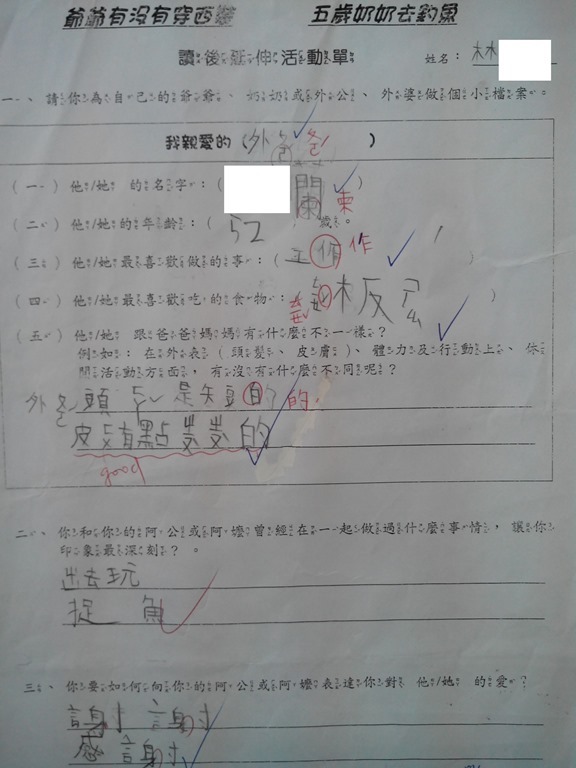 爺爺有沒有穿西裝 五歲奶奶去釣魚
讀後延伸活動單 姓名：林
一、請你為自己的爺爺、奶奶或外公、外婆做個小檔案。
我親愛的（外爸 爸）
（一）他/她 的名字：（ 闌 東）
（二）他/她的年齡：（52 歲。
（三）他/她最喜歡做的事：（工作 作）
（四）他/她最喜歡吃的食物：（板ㄕㄠ
（五）他/她 跟爸爸媽媽有什麼不一樣？
例如：在外表（頭髮、皮膚）、體力及行動上、休
閒活動方面，有沒有什麼不同呢？
外 頭ㄈㄚˇ是短的 的.
皮ㄈㄨ有點皺皺的
good
二、你和你的阿公或阿嬤曾經在一起做過什麼事情，讓你
印象最深刻？。
出去玩
捉 魚
三、你要如何向你的阿公或阿嬤表達你對 他/她 的愛？
謝謝
感謝